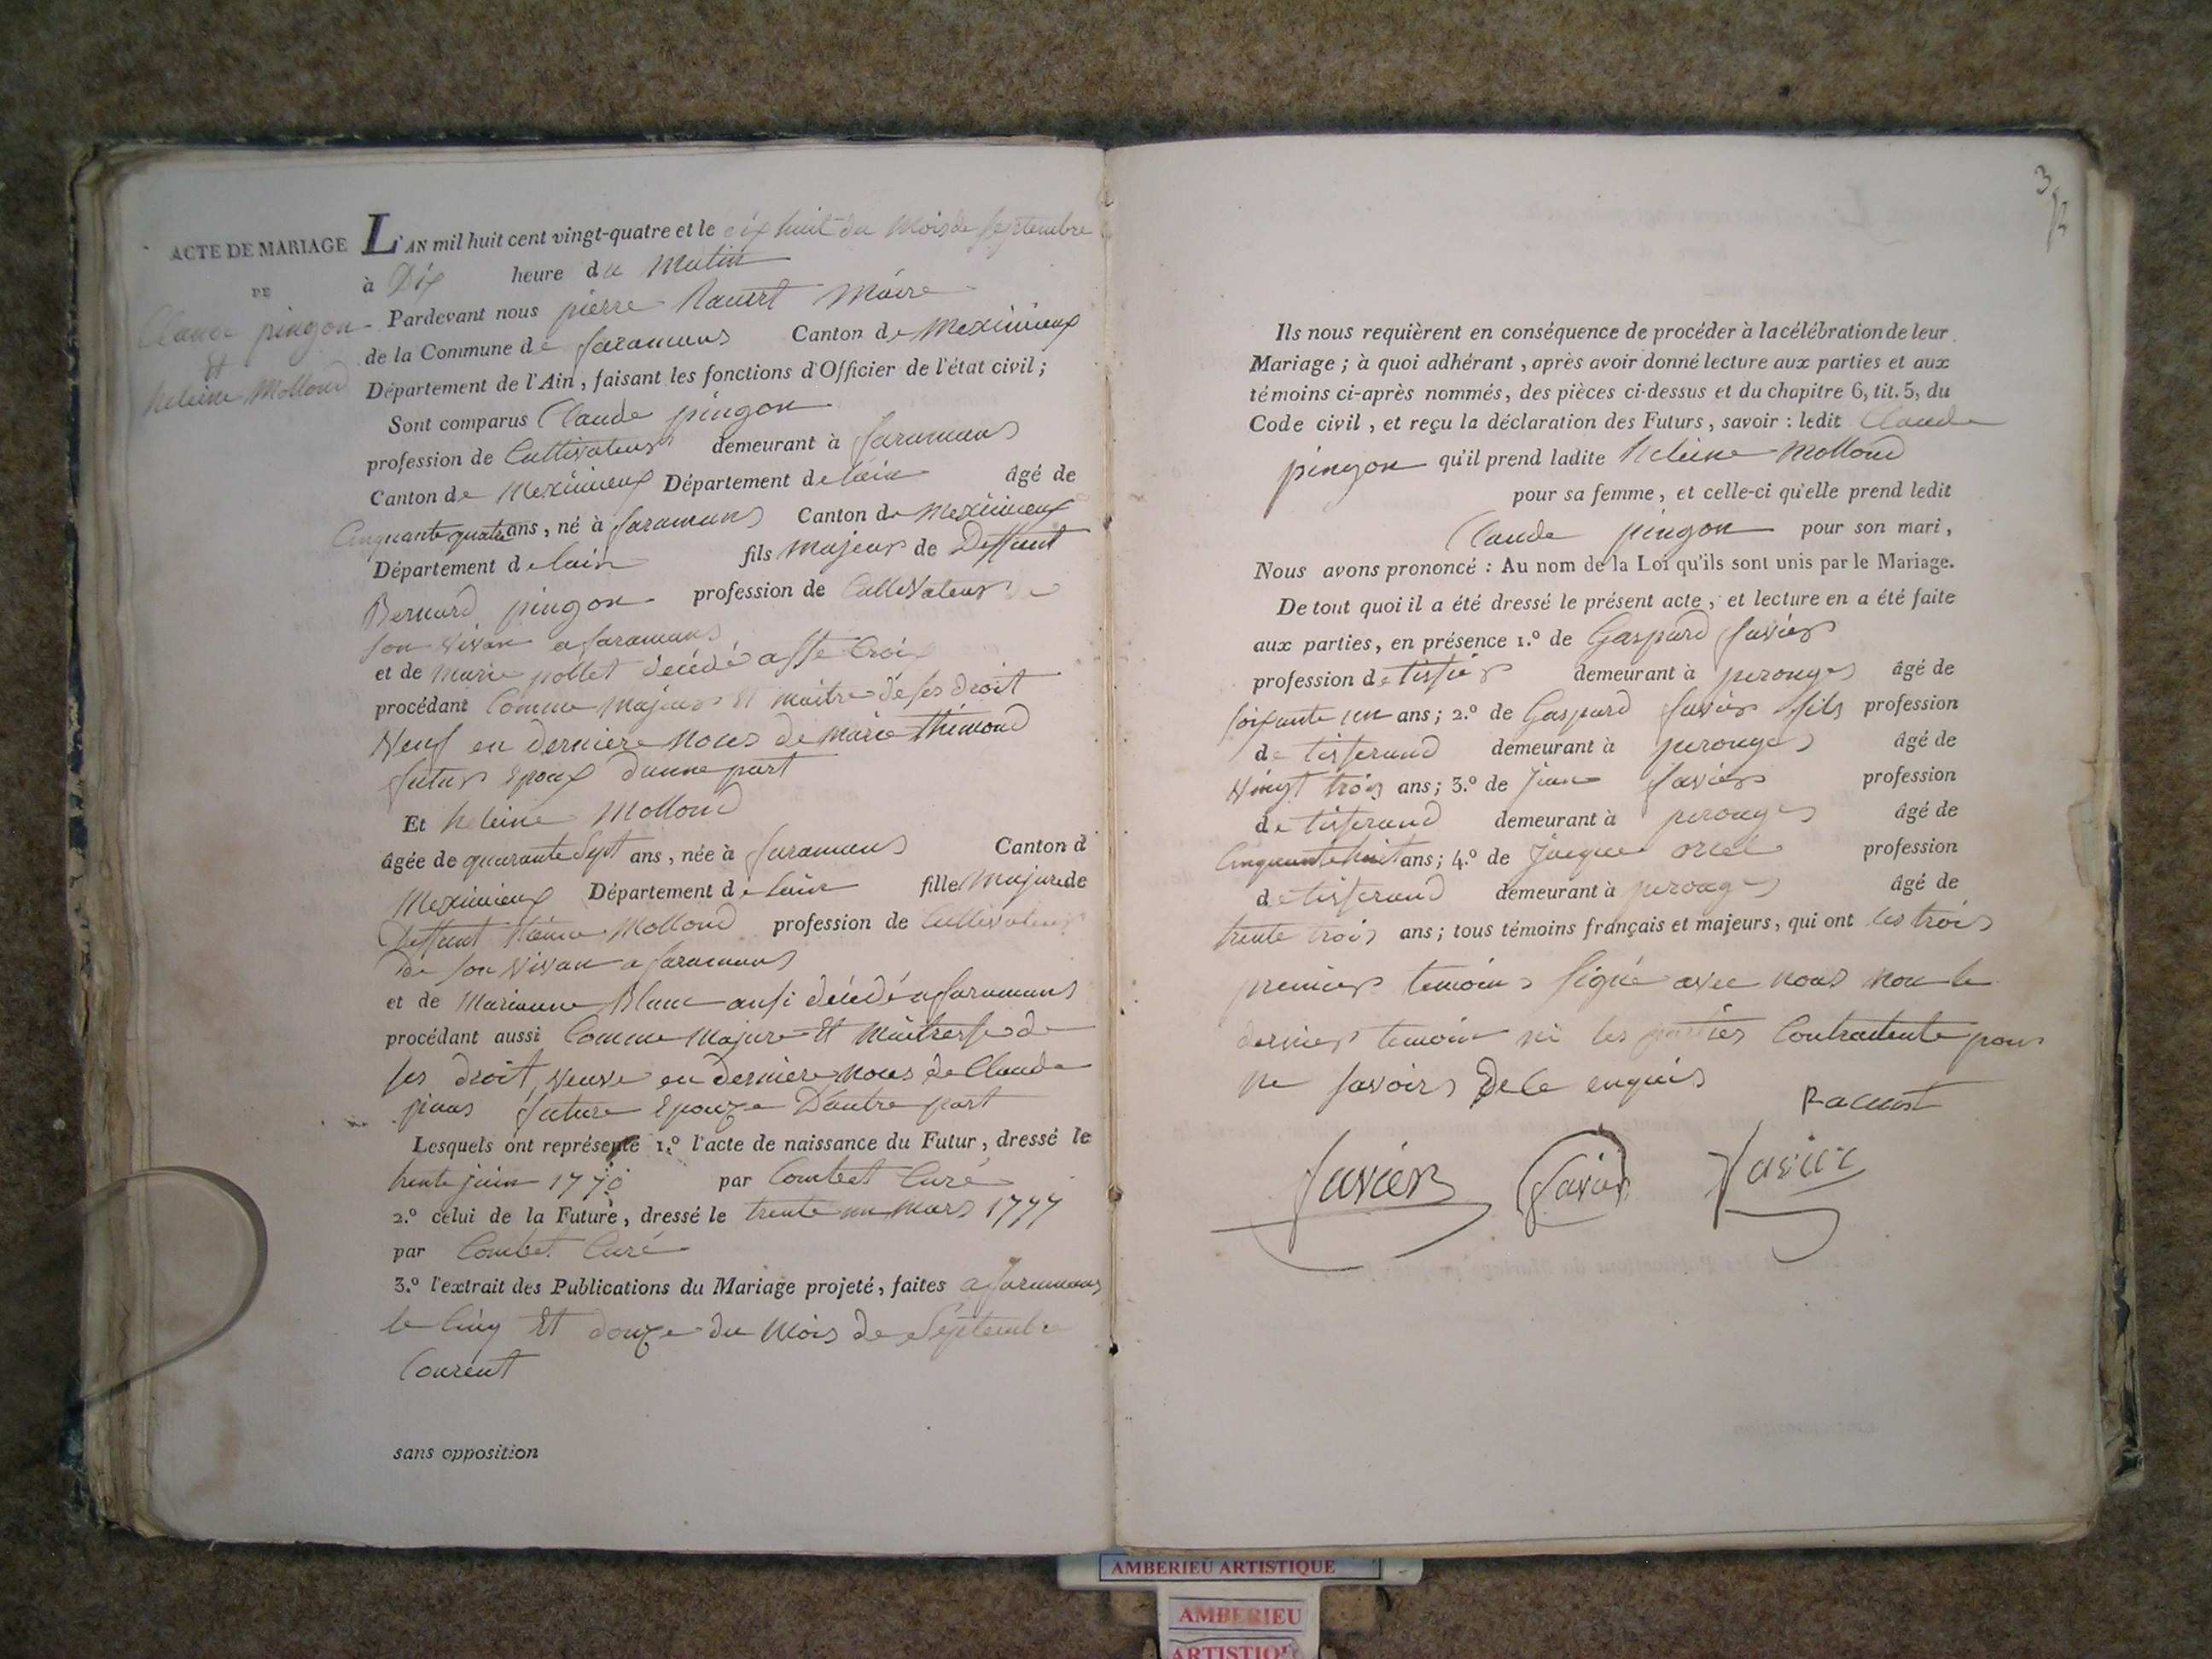 ACTE DE MARIAGE
DE
Claude pingon
Et
heleine Mollond
L'AN mil huit cent vingt-quatre et le dix huit du Mois de Septembre
à Dix heure du Matin
Pardevant nous pierre Racurt Maire
de la Commune de faramans Canton de Meximieux
Département de l'Ain, faisant les fonctions d'Officier de l'état civil ;
Sont comparus Claude pingon
profession de Cultivateur demeurant à faramans
Canton de Meximieux Département de lain âgé de
Cinquante quatre ans, né à faramans Canton de Meximieux
Département de lain fils Majeur de Deffunt
Bernard pingon profession de Cultivateur de
son vivan a faramans
et de Marie pollet décédé a Ste Croix
procédant Comme Majeur Et maitre de ses droit
Veuf en derniere noces de marie thimond
futur Epoux dunne part
Et heleine Mollond
âgée de quarante Sept ans, née à faramans Canton d
Meximieux Département de lain fille Majure de
Deffunt Mollond profession de Cultivateur
De son vivan a faramans
et de Marianne Blanc ausi décédé a faramans
procédant aussi Comme Majure Et Maitresse de
ses droit, veuve en derniere noces de Claude
future Epouze D'autre part
Lesquels ont représenté 1.º l'acte de naissance du Futur, dressé le
trente juin 1770 par Combet Curé
2.º celui de la Future, dressé le trente un Mars 1777
par Combet Curé
3.º l'extrait des Publications du Mariage projeté, faites a faramans
le Cinq Et douze du Mois de Septembre
Courent
sans opposition
3
Ils nous requièrent en conséquence de procéder à la célébration de leur
Mariage ; à quoi adhérant, après avoir donné lecture aux parties et aux
témoins ci-après nommés, des pièces ci-dessus et du chapitre 6, tit. 5, du
Code civil, et reçu la déclaration des Futurs, savoir : ledit Claude
pingon qu'il prend ladite heleine Mollond
pour sa femme, et celle-ci qu'elle prend ledit
Claude pingon pour son mari,
Nous avons prononcé : Au nom de la Loi qu'ils sont unis par le Mariage.
De tout quoi il a été dressé le présent acte, et lecture en a été faite
aux parties, en présence 1.º de Gaspard favier
profession de tissier demeurant à perouges âgé de
soixante un ans ; 2.º de Gaspard favier fils profession
de tisserand demeurant à perouges âgé de
vingt trois ans ; 3.º de Jean favier profession
de tisserand demeurant à perouges âgé de
Cinquante huit ans ; 4.º de Jacque profession
de tisserand demeurant à perouges âgé de
trente trois ans ; tous témoins français et majeurs, qui ont les trois
premiers temoins Signé avec nous non le
dernier temoin ni les parties Contractente pour
ne savoir De ce enquis
Racurt
favier favier favier
AMBERIEU ARTISTIQUE
AMBERIEU
ARTISTIQUE